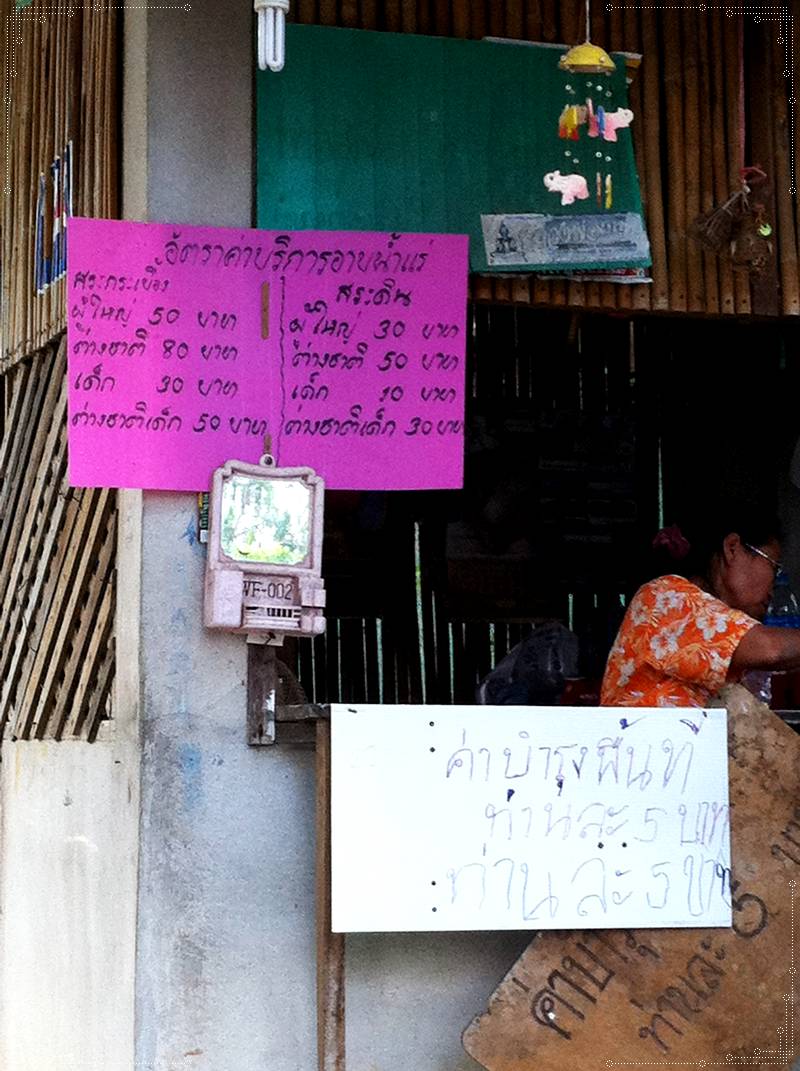 อัตราค่าบริการอาบน้ำแร่
สระกระเบื้อง
ผู้ใหญ่ 50 บาท
ต่างชาติ 80 บาท
เด็ก 30 บาท
ต่างชาติเด็ก 50 บาท
สระดิน
ผู้ใหญ่ 30 บาท
ต่างชาติ 50 บาท
เด็ก 10 บาท
ต่างชาติเด็ก 30 บาท
WF-002
ค่าบำรุงพื้นที่
ท่านละ 5 บาท
ท่านละ 5 บาท
ค่าบำรุ
ท่านละ 5 บ